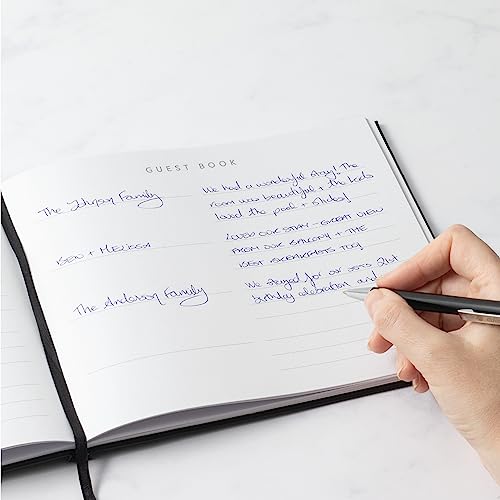 GUEST BOOK
The Johnson Family
We had a wonderful stay! The
room was beautiful + the kids
loved the pool + slides!
BEN + MELISSA
LOVED OUR STAY - GREAT VIEW
FROM OUR BALCONY + THE
BEST BREAKFASTS TOO
The Anderson Family
We stayed for our 21st
birthday celebration and